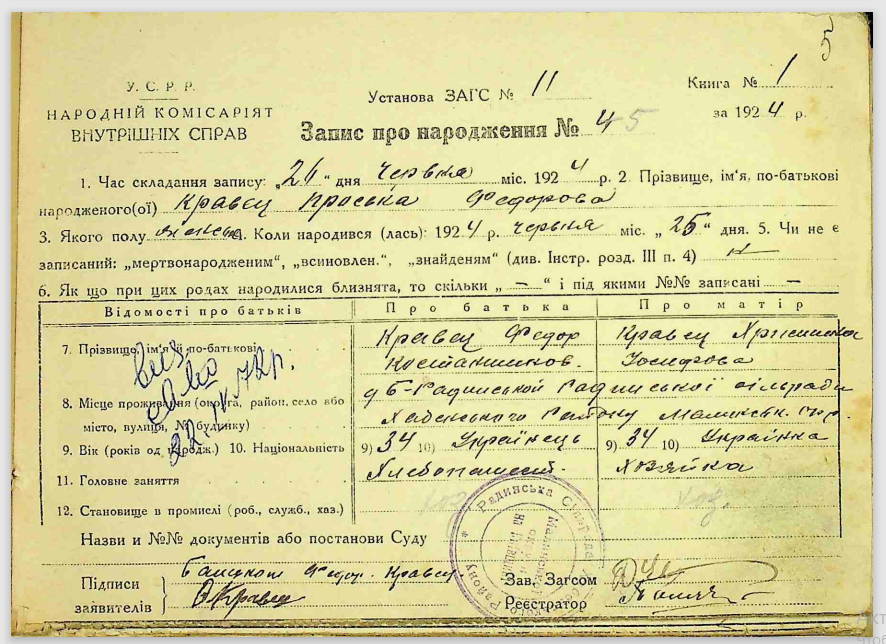 5
У. С. Р. Р.
НАРОДНІЙ КОМІСАРІЯТ
ВНУТРІШНІХ СПРАВ
Установа ЗАГС № 11
Книга № 1
за 1924 р.
Запис про народження № 45
1. Час складання запису: „26“ дня червня міс. 1924 р. 2. Прізвище, ім'я, по-батькові
народженого(ої) Кравец Проська Федорова
3. Якого полу 4. Коли народився (лась): 1924 р. червня міс. „25“ дня. 5. Чи не є
записаний: „мертвонародженим“, „всиновлен.“, „знайденям“ (див. Інстр. розд. III п. 4)
6. Як що при цих родах народилися близнята, то скільки „—“ і під якими №№ записані —
Відомості про батьків
Про батька
Про матір
7. Прізвище, ім'я й по-батькові
Кравец Федор
Кравец
Осифрова
8. Місце проживання (округа, район, село або
місто, вулиця, № будинку)
Радинської сільради
району
9. Вік (років од народж.) 10. Національність
9) 34 10) Українець
9) 34 10) Українка
11. Головне заняття
Хлебопашест.
Хозяйка
12. Становище в промислі (роб., служб., хаз.)
хоз.
хоз.
Назви и №№ документів або постанови Суду
Підписи
заявителів
Федор. Кравец
Кравец
Зав. Загсом
Реєстратор
Радинська
Району